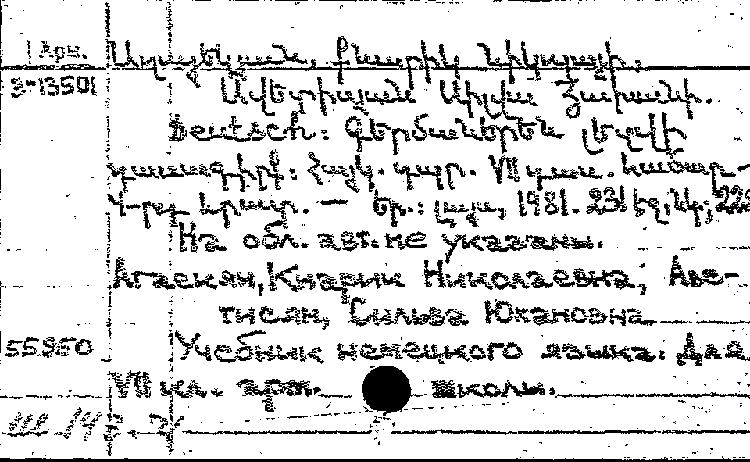 1 Арм.
Աղասեկյան, Քնարիկ Նիկոլայի,
3-13501
Ավետիսյան Սիլվա Հովհանի.
Deutsch: Գերմաներեն լեզվի
դասագիրք: Հայկ. դպր. VII դաս. համար.—
4-րդ հրատ. — Եր.: Լույս, 1981. 231 էջ, նկ.; 22
На обл. авт. не указаны.
Агасекян, Кнарик Николаевна; Аве-
тисян, Сильва Юхановна
55950
Учебник немецкого языка. Для
VII кл. арм. школы.